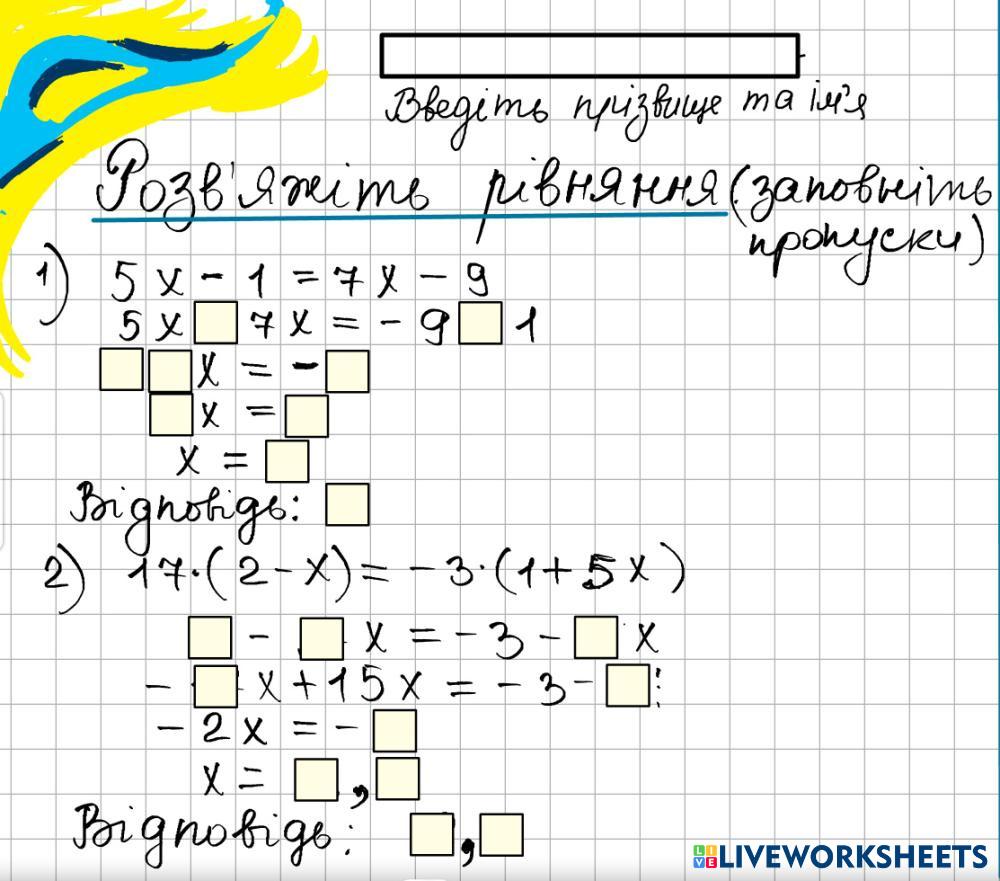 Введіть прізвище та ім'я
Розв'яжіть рівняння (заповніть
пропуски)
1) 5x - 1 = 7x - 9
5x □ 7x = - 9 □ 1
□ □ x = - □
□ x = □
x = □
Відповідь: □
2) 17·(2 - x) = - 3·(1 + 5x)
□ - □ x = - 3 - □ x
- □ x + 15x = - 3 - □
- 2x = - □
x = □, □
Відповідь: □, □
LIVEWORKSHEETS